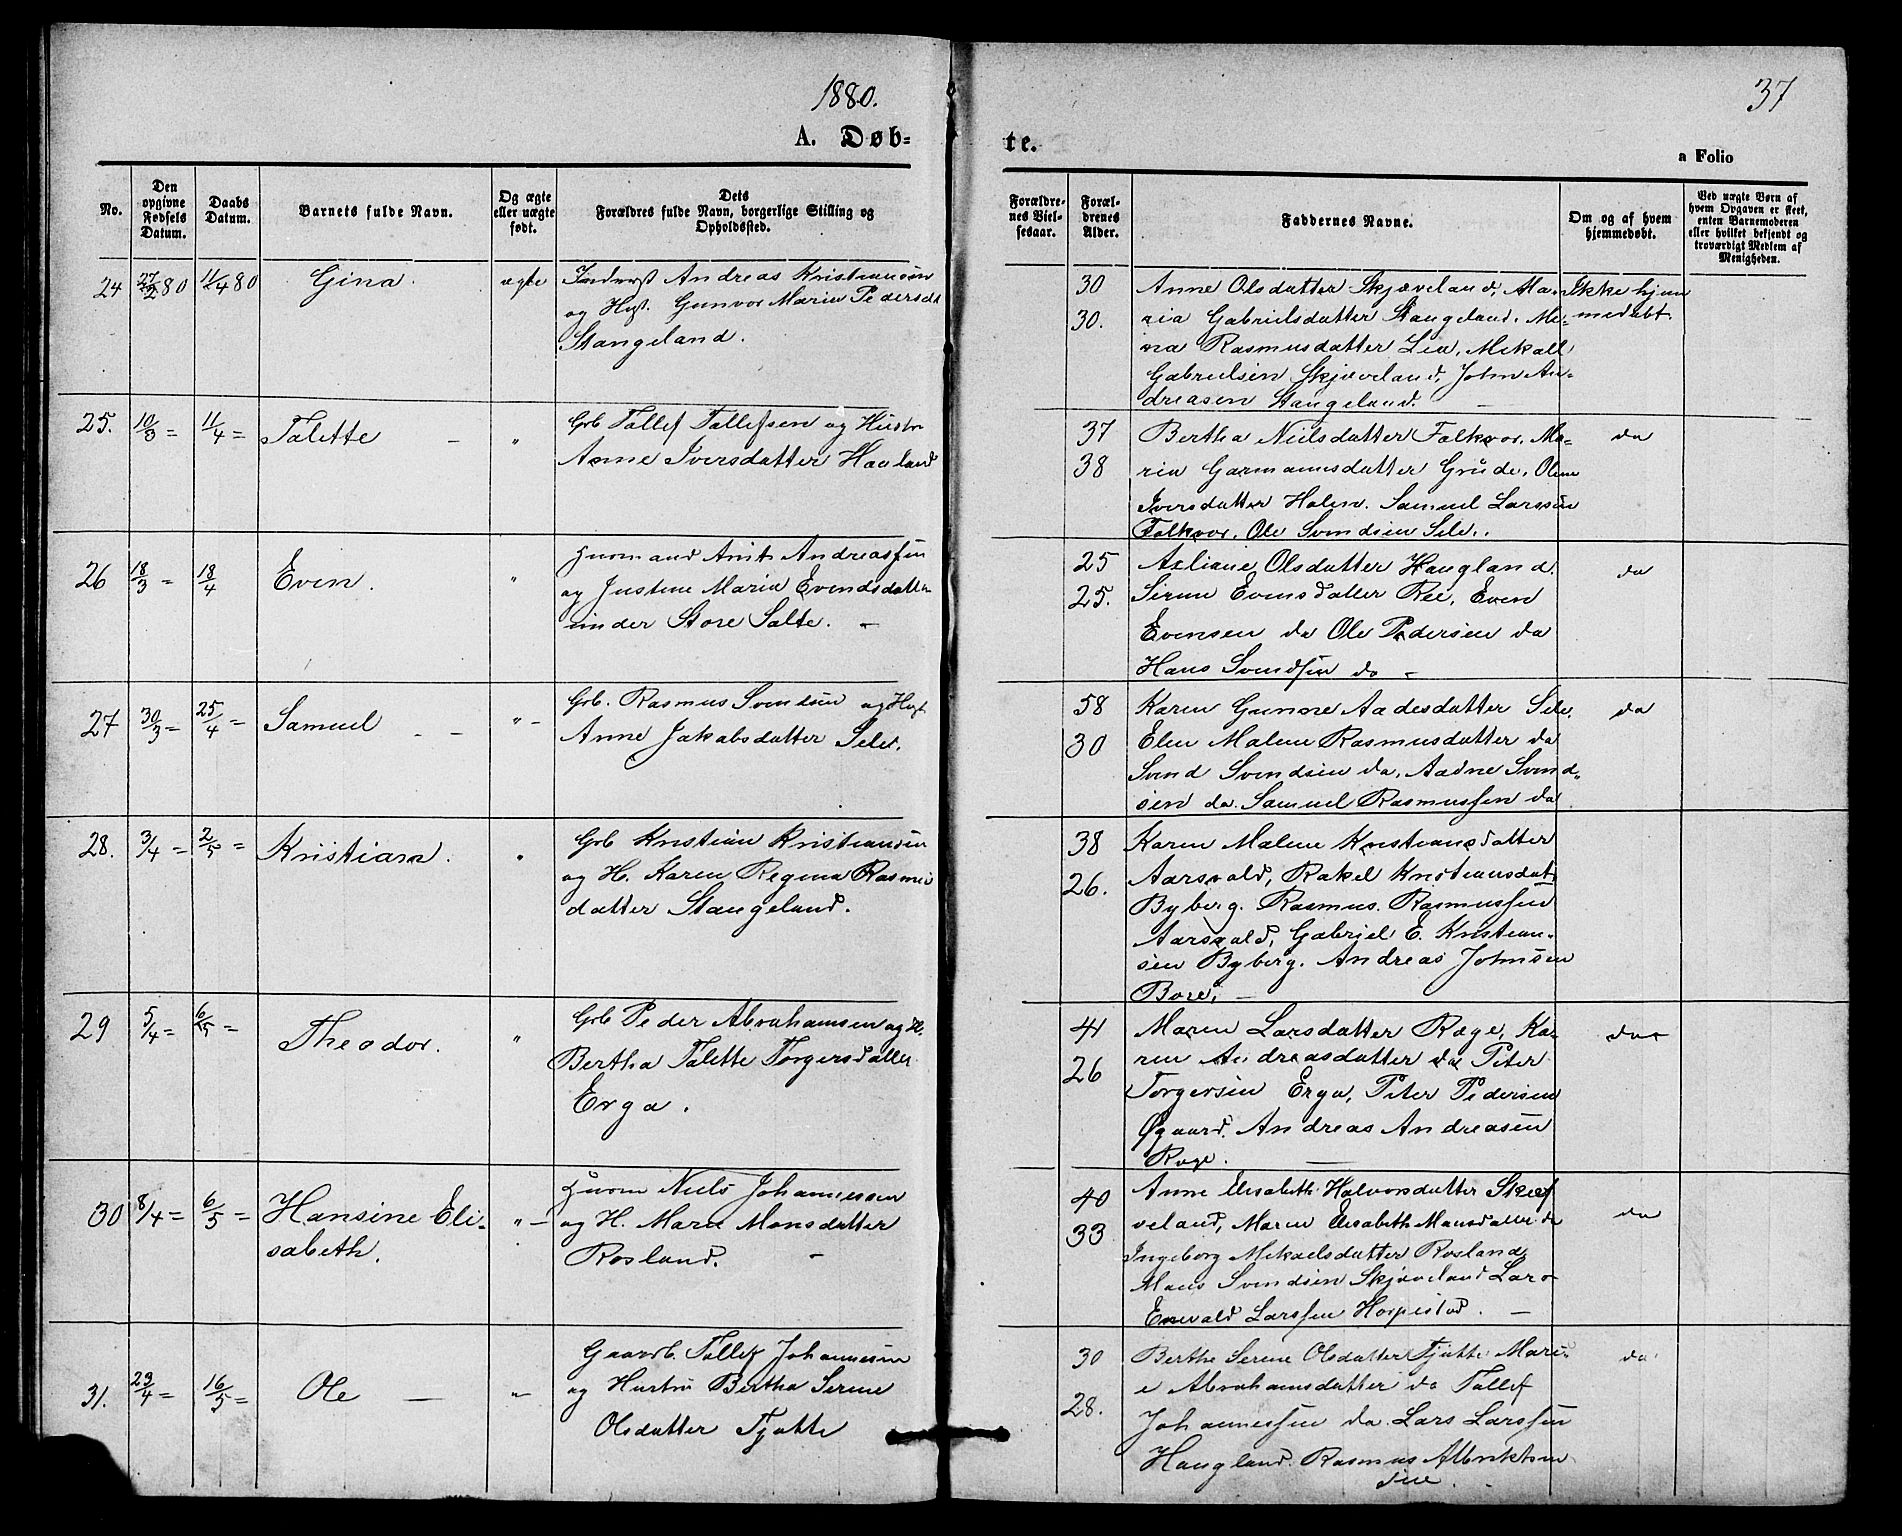 1880.
37
A. Døb-
te.
a Folio
No.
Den opgivne Fødsels Datum.
Daabs Datum.
Barnets fulde Navn.
Og ægte eller uægte født.
Dets Forældres fulde Navn, borgerlige Stilling og Opholdssted.
Forældrenes Vielsesaar.
Forældrenes Alder.
Faddernes Navne.
Om og af hvem hjemmedøbt.
Ved uægte Børn af hvem Opgaven er skeet, enten Barnemoderen eller hvilket bekjendt og troværdigt Medlem af Menigheden.
24 27/2 80 11/4 80 Gina. ægte
Andreas Kristiansen
og Hust. Gunvor Maria Pedersdt
Stangeland.
30
30.
Anne Olsdatter Skjæveland, Ma-
ria Gabrielsdatter Stangeland. Me-
na Rasmusdatter Lea, Mikall
Gabrielsen Skjæveland, John An-
dreasen Stangeland.
Ikke hjem
medøbt.
25. 10/3 = 11/4 = Talette - "
Grb Tallef Tallefsen og Hustr
Anne Iversdatter Haaland
37
38
Bertha Nielsdatter Folkvor, Ma-
ria Garmannsdatter Grude, Olene
Iversdatter Holen. Samuel Larssen
Folkvor. Ole Svendsen Sele.
do
26 18/3 = 18/4 Even. "
Andreassen
og Justine Maria Evendsdatter
under Store Salte. -
25
25.
Axliane Olsdatter Haugland.
Sirene Evensdatter Ree, Even
Evensen do Ole Pedersen do
Hans Svendsen do -
do
27 30/3 = 25/4 = Samuel - - " -
Grb. Rasmus Svendsen og Hust
Anne Jakobsdatter Sele.
58
30
Karen Gunne Aadesdatter Sele,
Elen Malene Rasmusdatter do
Svend Svendsen do, Aadne Svend-
sen do. Samuel Rasmussen do
do
28. 3/4 = 2/5 = Kristian. "
Grb Kristian Kristiansen
og H. Karen Regina Rasmus
datter Stangeland.
38
26.
Karen Malene Kristiansdatter
Aarsvold, Rakel Kristiansdat
Byberg. Rasmus. Rasmussen
Aarsvold, Gabriel E. Kristian-
sen Byberg. Andreas Johnsen
Bore. -
29 5/4 = 6/5 = Theodor. "
Grb Peder Abrahamsen og H.
Bertha Talette Torgersdatter
Erga.
41
26
Maren Larsdatter Ræge, Ka-
ren Andreasdatter do Peter
Torgersen Erga, Peter Pedersen
Øgaard. Andreas Andreasen
Ræge.
do
30 8/4 = 6/5 = Hansine Eli-
sabeth. " -
Niels Johannessen
og H. Maren Monsdatter
Rosland. -
40
33
Anne Elisabeth Halvorsdatter Skjæ
veland, Maren Elisabeth Mansdatter do
Ingeborg Mikaelsdatter Rosland
Mans Svendsen Skjæveland Lars
Enevald Larssen Horpestad. -
do
31. 23/4 = 16/5 = Ole - " -
Gaardb. Tallef Johannessen
og Hustru Bertha Serine
Olsdatter Tjøtte
30
28.
Berthe Serene Olsdatter Tjøtte Mari-
e Abrahamsdatter do Tallef
Johannessen do. Lars Larssen
Haugland. Rasmus Albriktsen
do